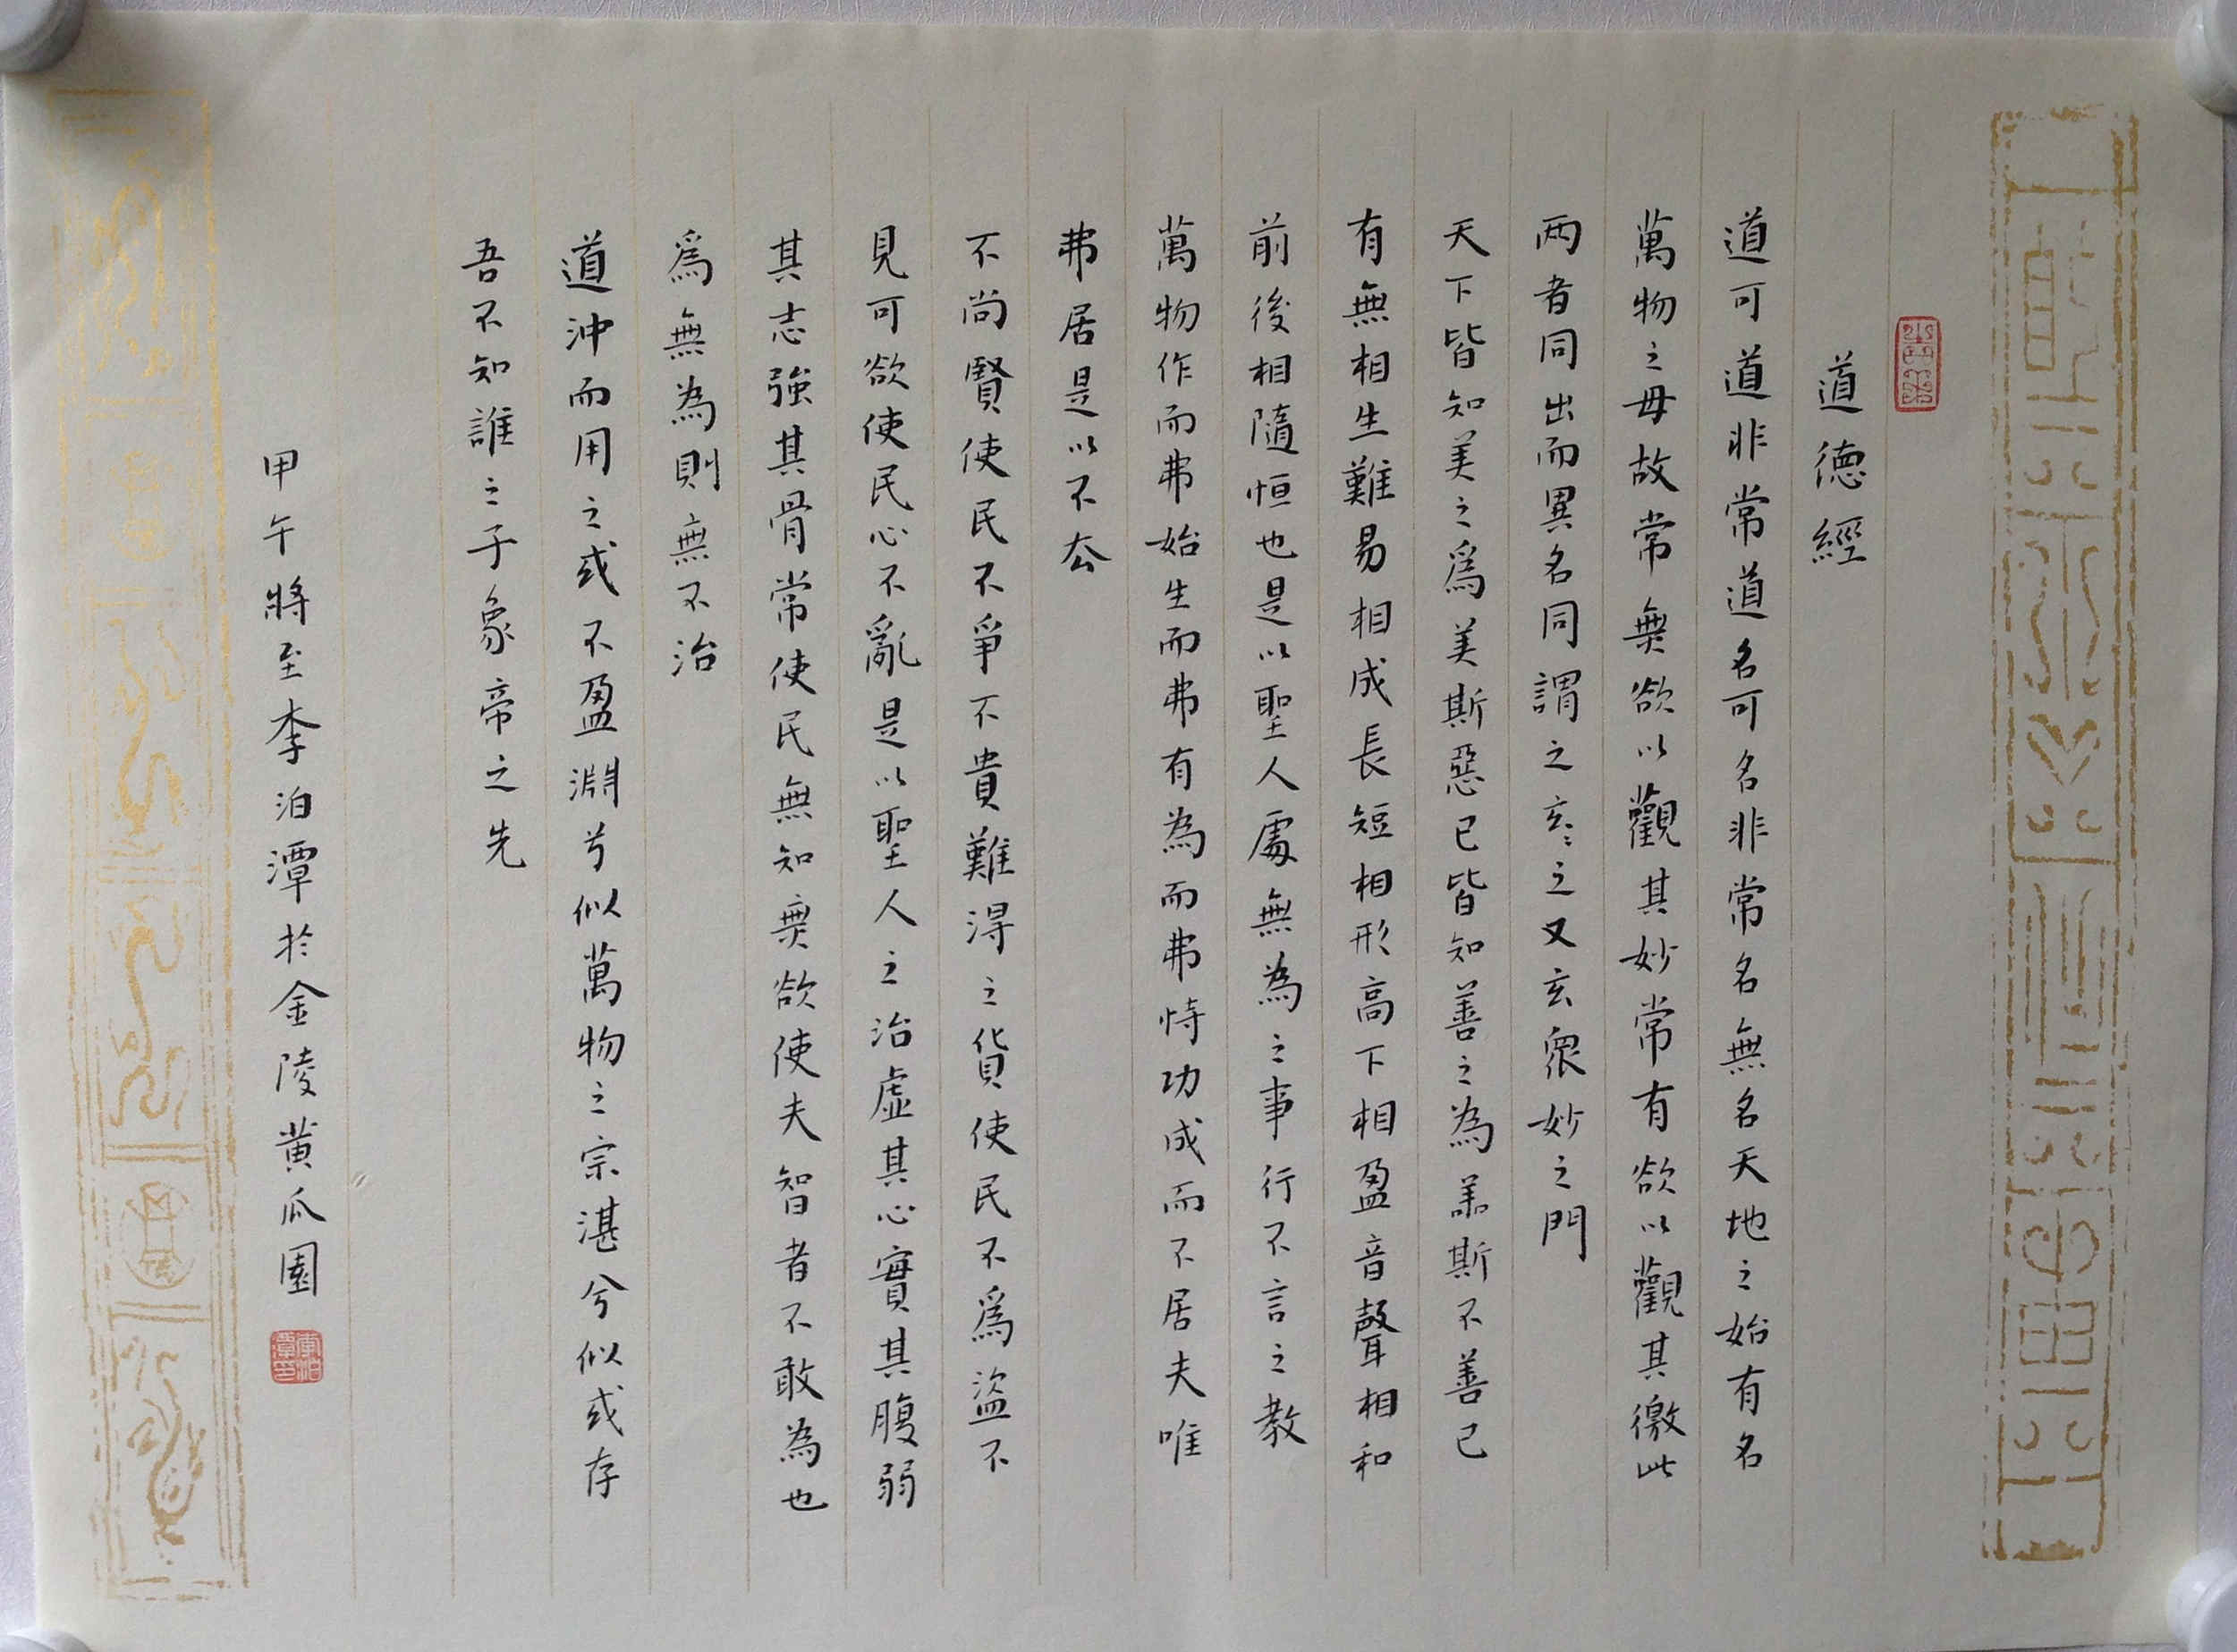 道德經
道可道非常道名可名非常名無名天地之始有名
萬物之母故常無欲以觀其妙常有欲以觀其徼此
兩者同出而異名同謂之玄〻之又玄衆妙之門
天下皆知美之爲美斯惡已皆知善之為善斯不善已
有無相生難易相成長短相形高下相盈音聲相和
前後相隨恒也是以聖人處無為之事行不言之教
萬物作而弗始生而弗有為而弗恃功成而不居夫唯
弗居是以不去
不尚賢使民不爭不貴難得之貨使民不爲盜不
見可欲使民心不亂是以聖人之治虛其心實其腹弱
其志強其骨常使民無知無欲使夫智者不敢為也
爲無為則無不治
道沖而用之或不盈淵兮似萬物之宗湛兮似或存
吾不知誰之子象帝之先
甲午將至李泊潭於金陵黄瓜園
李泊潭印